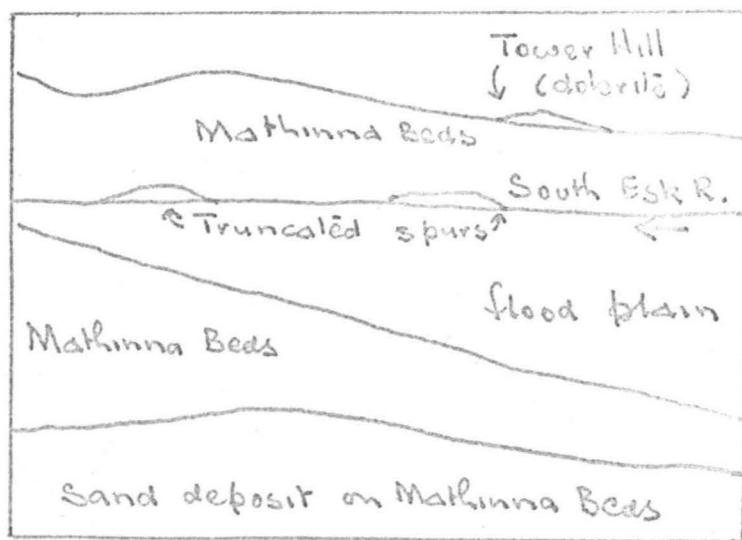 Tower Hill
(dolerite)
Mathinna Beds
South Esk R.
Truncated spurs
flood plain
Mathinna Beds
Sand deposit on Mathinna Beds